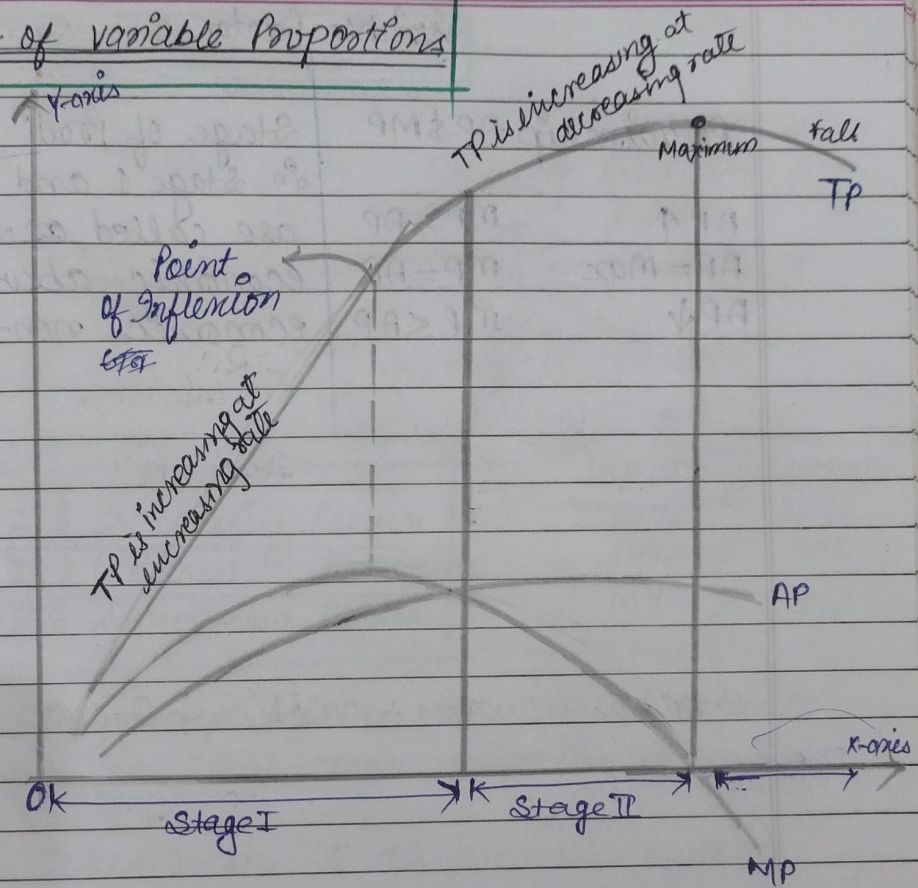 of variable Proportions
Y-axis
TP is increasing at
decreasing rate
Maximum
Fall
TP
Point
of Inflexion
TP is increasing at
increasing rate
AP
X-axis
O
Stage I
Stage II
MP